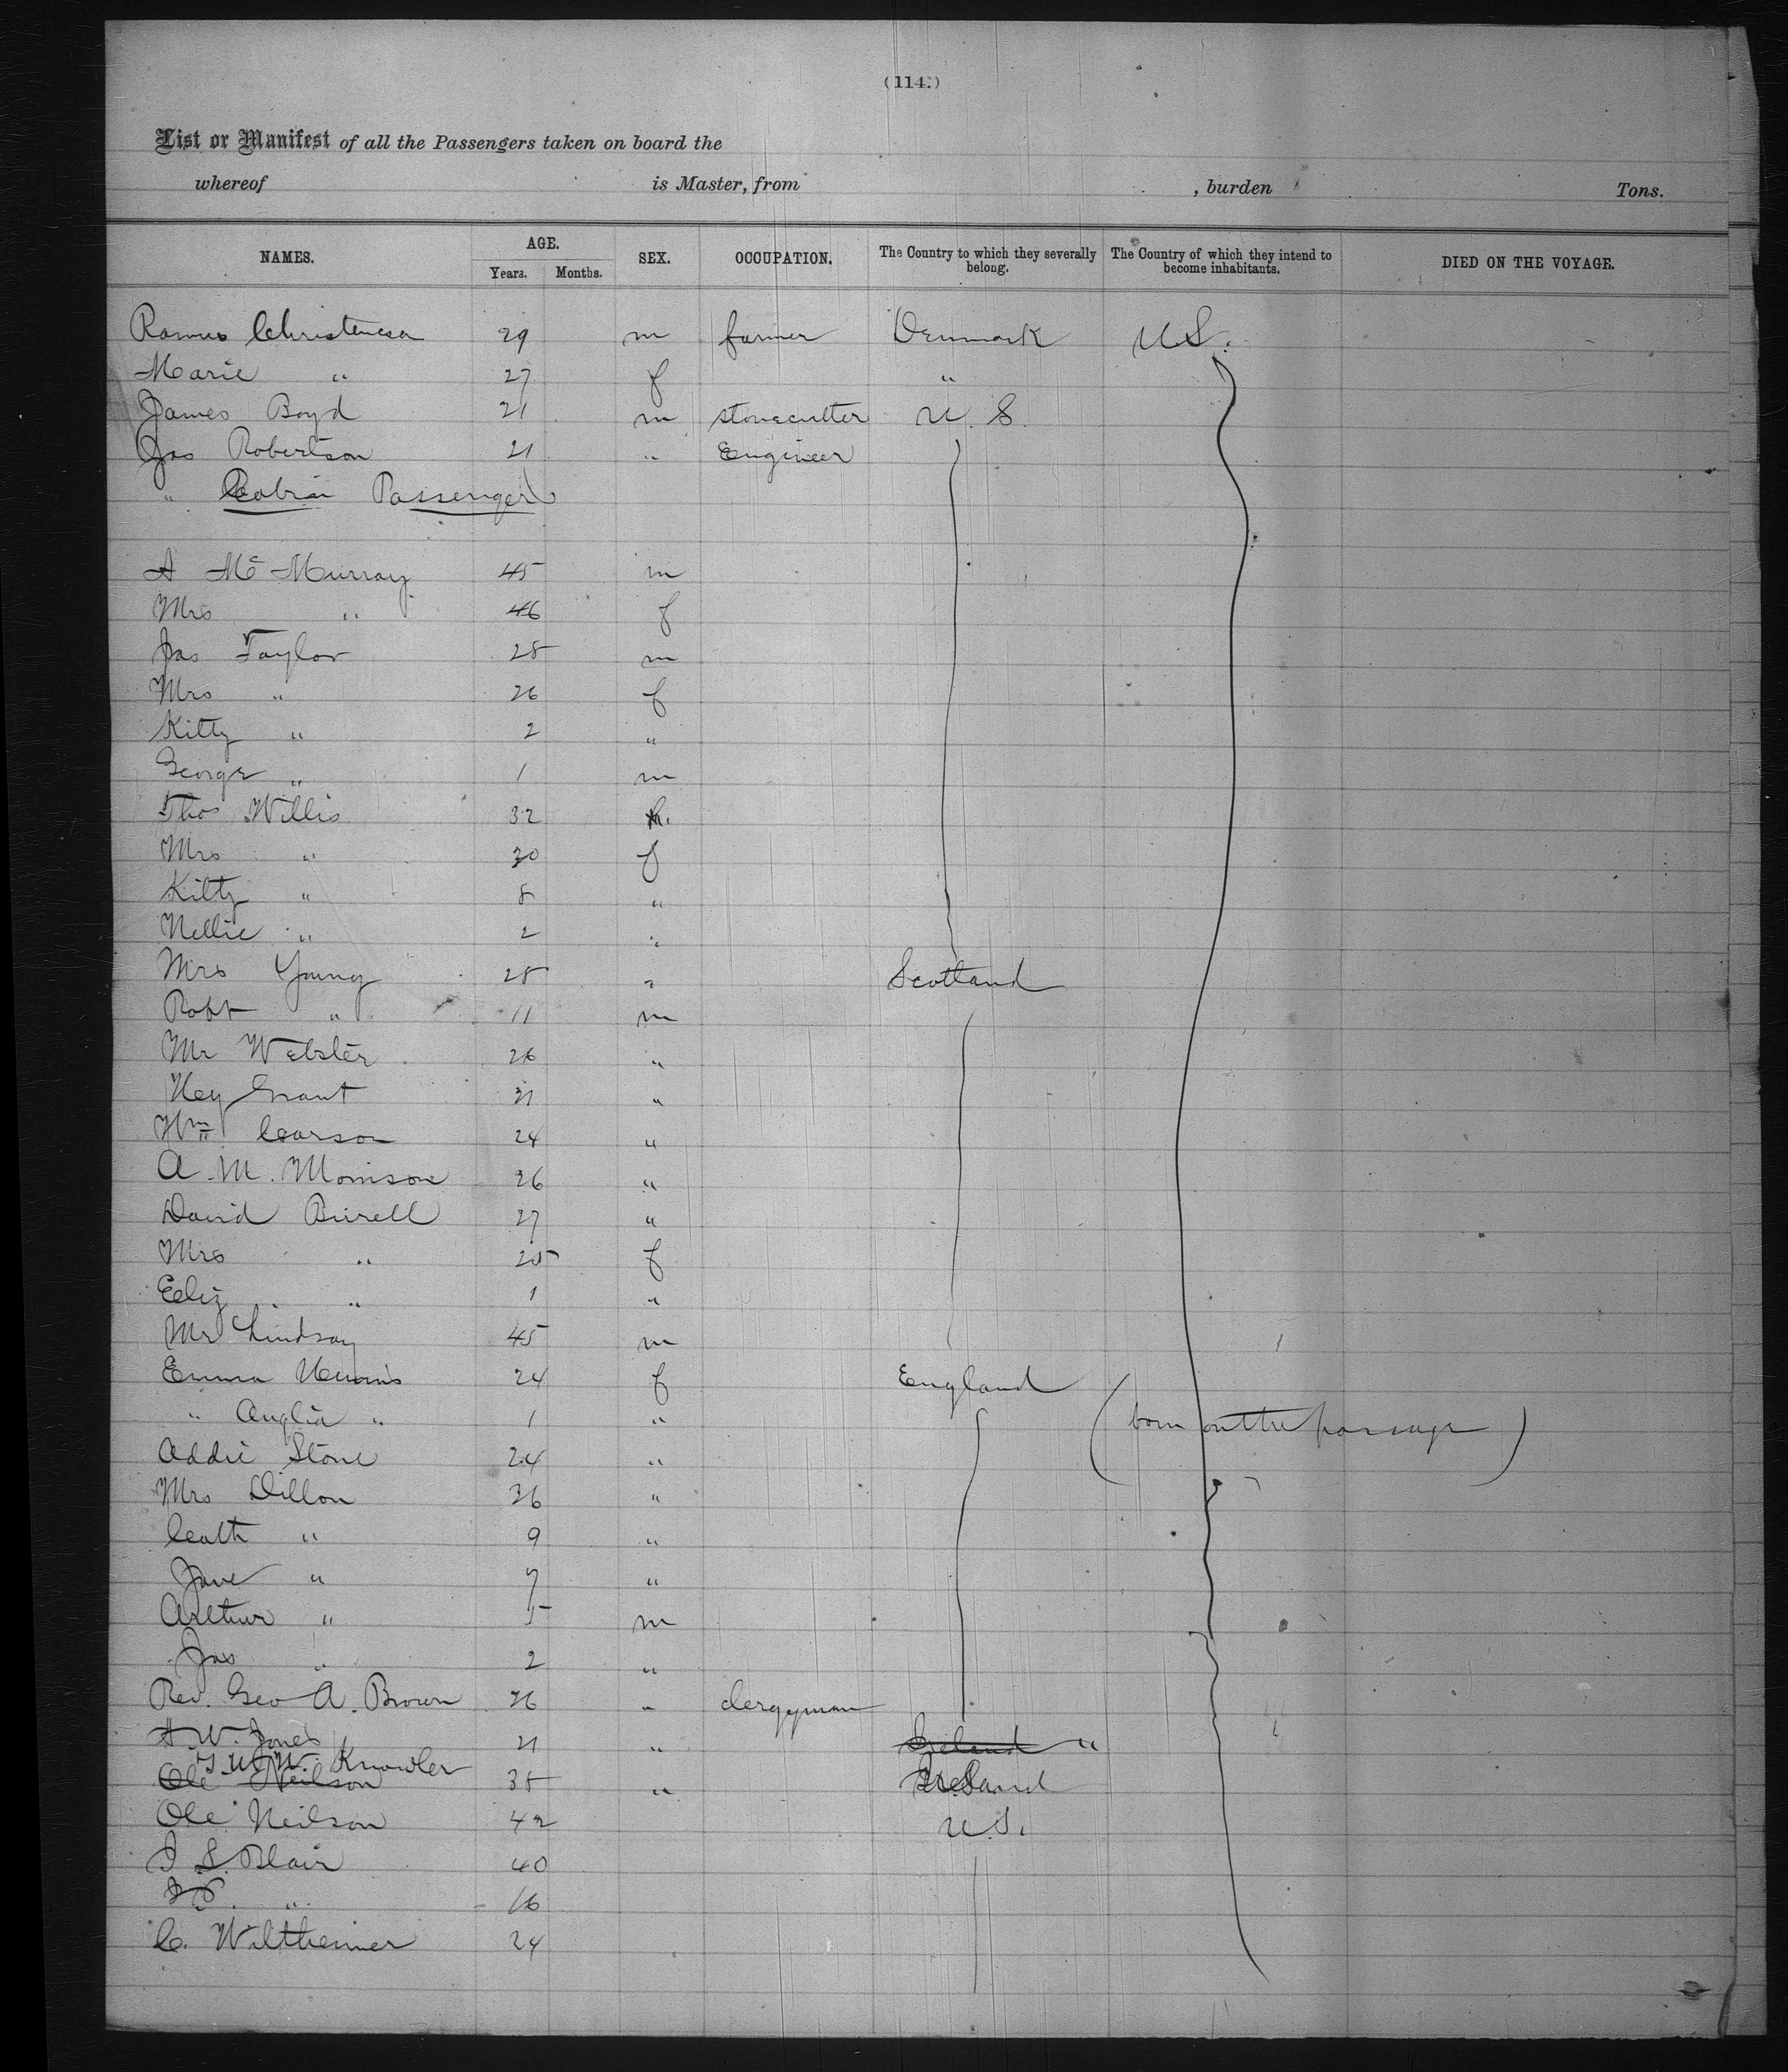 (114.)
List or Manifest of all the Passengers taken on board the
whereof is Master, from , burden Tons.
NAMES. AGE. Years. Months. SEX. OCCUPATION. The Country to which they severally belong. The Country of which they intend to become inhabitants. DIED ON THE VOYAGE.
Christensen 29 m farmer Denmark U S.
Marie " 27 f "
James Boyd 21 m stonecutter U. S.
Jas Robertson 21 " Engineer
" Cabin Passengers
A McMurray 45 m
Mrs " 46 f
Jas Taylor 28 m
Mrs " 26 f
Kitty " 2 "
George " 1 m
Thos Willis 32 m.
Mrs " 30 f
Kitty " 8 "
Nellie " 2 "
Mrs Young 28 " Scotland
Robt " 11 m
Mr Webster 26 "
Grant 31 "
Wm Carson 24 "
A. M. Morrison 26 "
David Birrell 27 "
Mrs " 25 f
Eliz " 1 "
Mr Lindsay 45 m
Emma 24 f England
" Anglia " 1 " (born on the passage)
Addie Stone 24 "
Mrs Dillon 36 "
Cath " 9 "
Jane " 7 "
Arthur " 5 m
Jas " 2 "
Rev. Geo A. Brown 26 " clergyman
A W. Jones 21 " Ireland "
Knowler
Ole Neilson 35 " Ireland
Ole Neilson 42 U.S.
J S. Blair 40
" 16
C. Wiltheimer 24